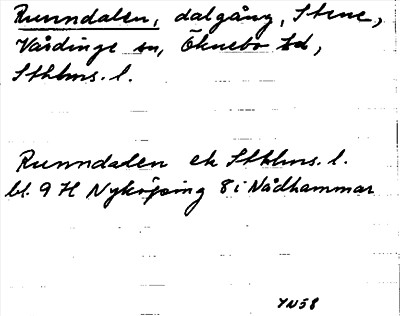 Runndalen, dalgång, Stene,
Vårdinge sn, Öknebo hd,
Sthlms. l.
Runndalen ek Sthlms. l.
bl. 9 H Nyköping 8 i Nådhammar
YN58